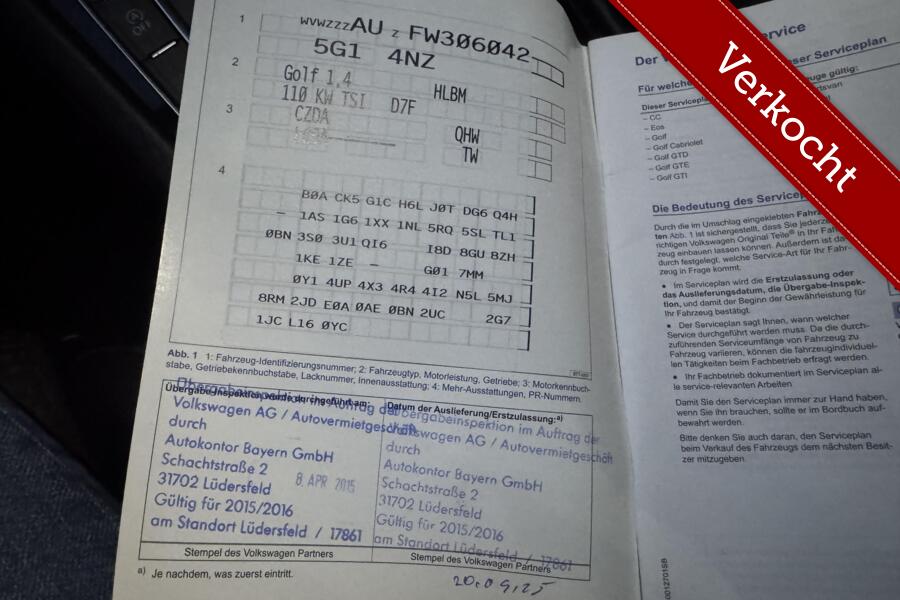 1 WVWZZZAU Z FW306042
5G1 4NZ
2 Golf 1,4 HLBM
110 KW TSI D7F
3 CZDA QHW
TW
4
B0A CK5 G1C H6L J0T DG6 Q4H
– 1AS 1G6 1XX 1NL 5RQ 5SL TL1
0BN 3S0 3U1 QI6 I8D 8GU 8ZH
1KE 1ZE – G01 7MM
0Y1 4UP 4X3 4R4 4I2 N5L 5MJ
8RM 2JD E0A 0AE 0BN 2UC 2G7
1JC L16 0YC
Abb. 1 1: Fahrzeug-Identifizierungsnummer; 2: Fahrzeugtyp, Motorleistung, Getriebe; 3: Motorkennbuch-
stabe, Getriebekennbuchstabe, Lacknummer, Innenausstattung; 4: Mehr-Ausstattungen, PR-Nummern.
Übergabe-Inspektion wurde durchgeführt am:
Übergabeinspektion im Auftrag der
Volkswagen AG / Autovermietgeschäft
durch
Autokontor Bayern GmbH
Schachtstraße 2
31702 Lüdersfeld 8. APR 2015
Gültig für 2015/2016
am Standort Lüdersfeld / 17861
Stempel des Volkswagen Partners
Datum der Auslieferung/Erstzulassung:a)
Übergabeinspektion im Auftrag der
Volkswagen AG / Autovermietgeschäft
durch
Autokontor Bayern GmbH
Schachtstraße 2
31702 Lüdersfeld
Gültig für 2015/2016
am Standort Lüdersfeld / 17861
Stempel des Volkswagen Partners
a) Je nachdem, was zuerst eintritt.
Verkocht
Der
Für welche
Dieser Serviceplan
– CC
– Eos
– Golf
– Golf Cabriolet
– Golf GTD
– Golf GTE
– Golf GTI
Die Bedeutung des Servicep
Durch die im Umschlag eingeklebten
ten Abb. 1 ist sichergestellt, dass Sie
richtigen Volkswagen Original Teile® in Ihr
zeug einbauen lassen können. Außerdem ist
durch festgelegt, welche Service-Art für Ihr Fahr-
zeug in Frage kommt.
• Im Serviceplan wird die Erstzulassung oder
das Auslieferungsdatum, die Übergabe-Inspek-
tion, und damit der Beginn der Gewährleistung für
Ihr Fahrzeug bestätigt.
• Der Serviceplan sagt Ihnen, wann welcher
Service durchgeführt werden muss. Da die durch-
zuführenden Serviceumfänge von Fahrzeug zu
Fahrzeug variieren, können die fahrzeugindividuel-
len Tätigkeiten beim Fachbetrieb erfragt werden.
• Ihr Fachbetrieb dokumentiert im Serviceplan al-
le service-relevanten Arbeiten.
Damit Sie den Serviceplan immer zur Hand haben,
wenn Sie ihn brauchen, sollte er im Bordbuch auf-
bewahrt werden.
Bitte denken Sie auch daran, den Serviceplan
beim Verkauf des Fahrzeugs dem nächsten Besit-
zer mitzugeben.